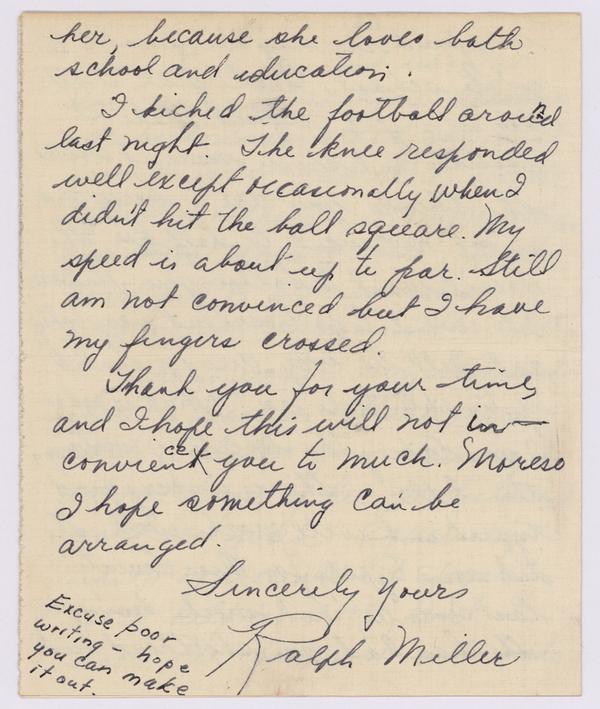 her, because she loves both
school and education.
I kicked the football around
last night. The knee responded
well except occasionally when I
didn't hit the ball square. My
speed is about up to par. Still
am not convinced but I have
my fingers crossed.
Thank you for your time,
and I hope this will not in-
convience you to much. Moreso
I hope something can be
arranged.
Sincerely Yours
Ralph Miller
Excuse poor
writing - hope
you can make
it out.